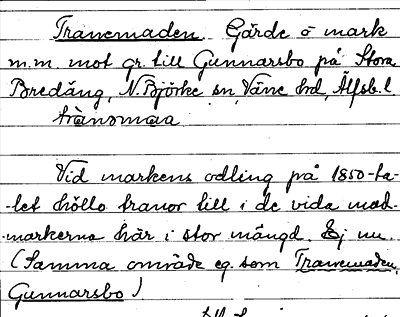 Tranemaden. Gärde o mark
m.m. mot gr. till Gunnarsbo på Stora
Bredäng, N. Björke sn, Väne hd, Älfsb. l.
trànəmaa
Vid markens odling på 1850-ta-
-let höllo tranor till i de vida mad-
markerna här i stor mängd. Ej nu
(Samma område eg. som Tranemaden,
Gunnarsbo)